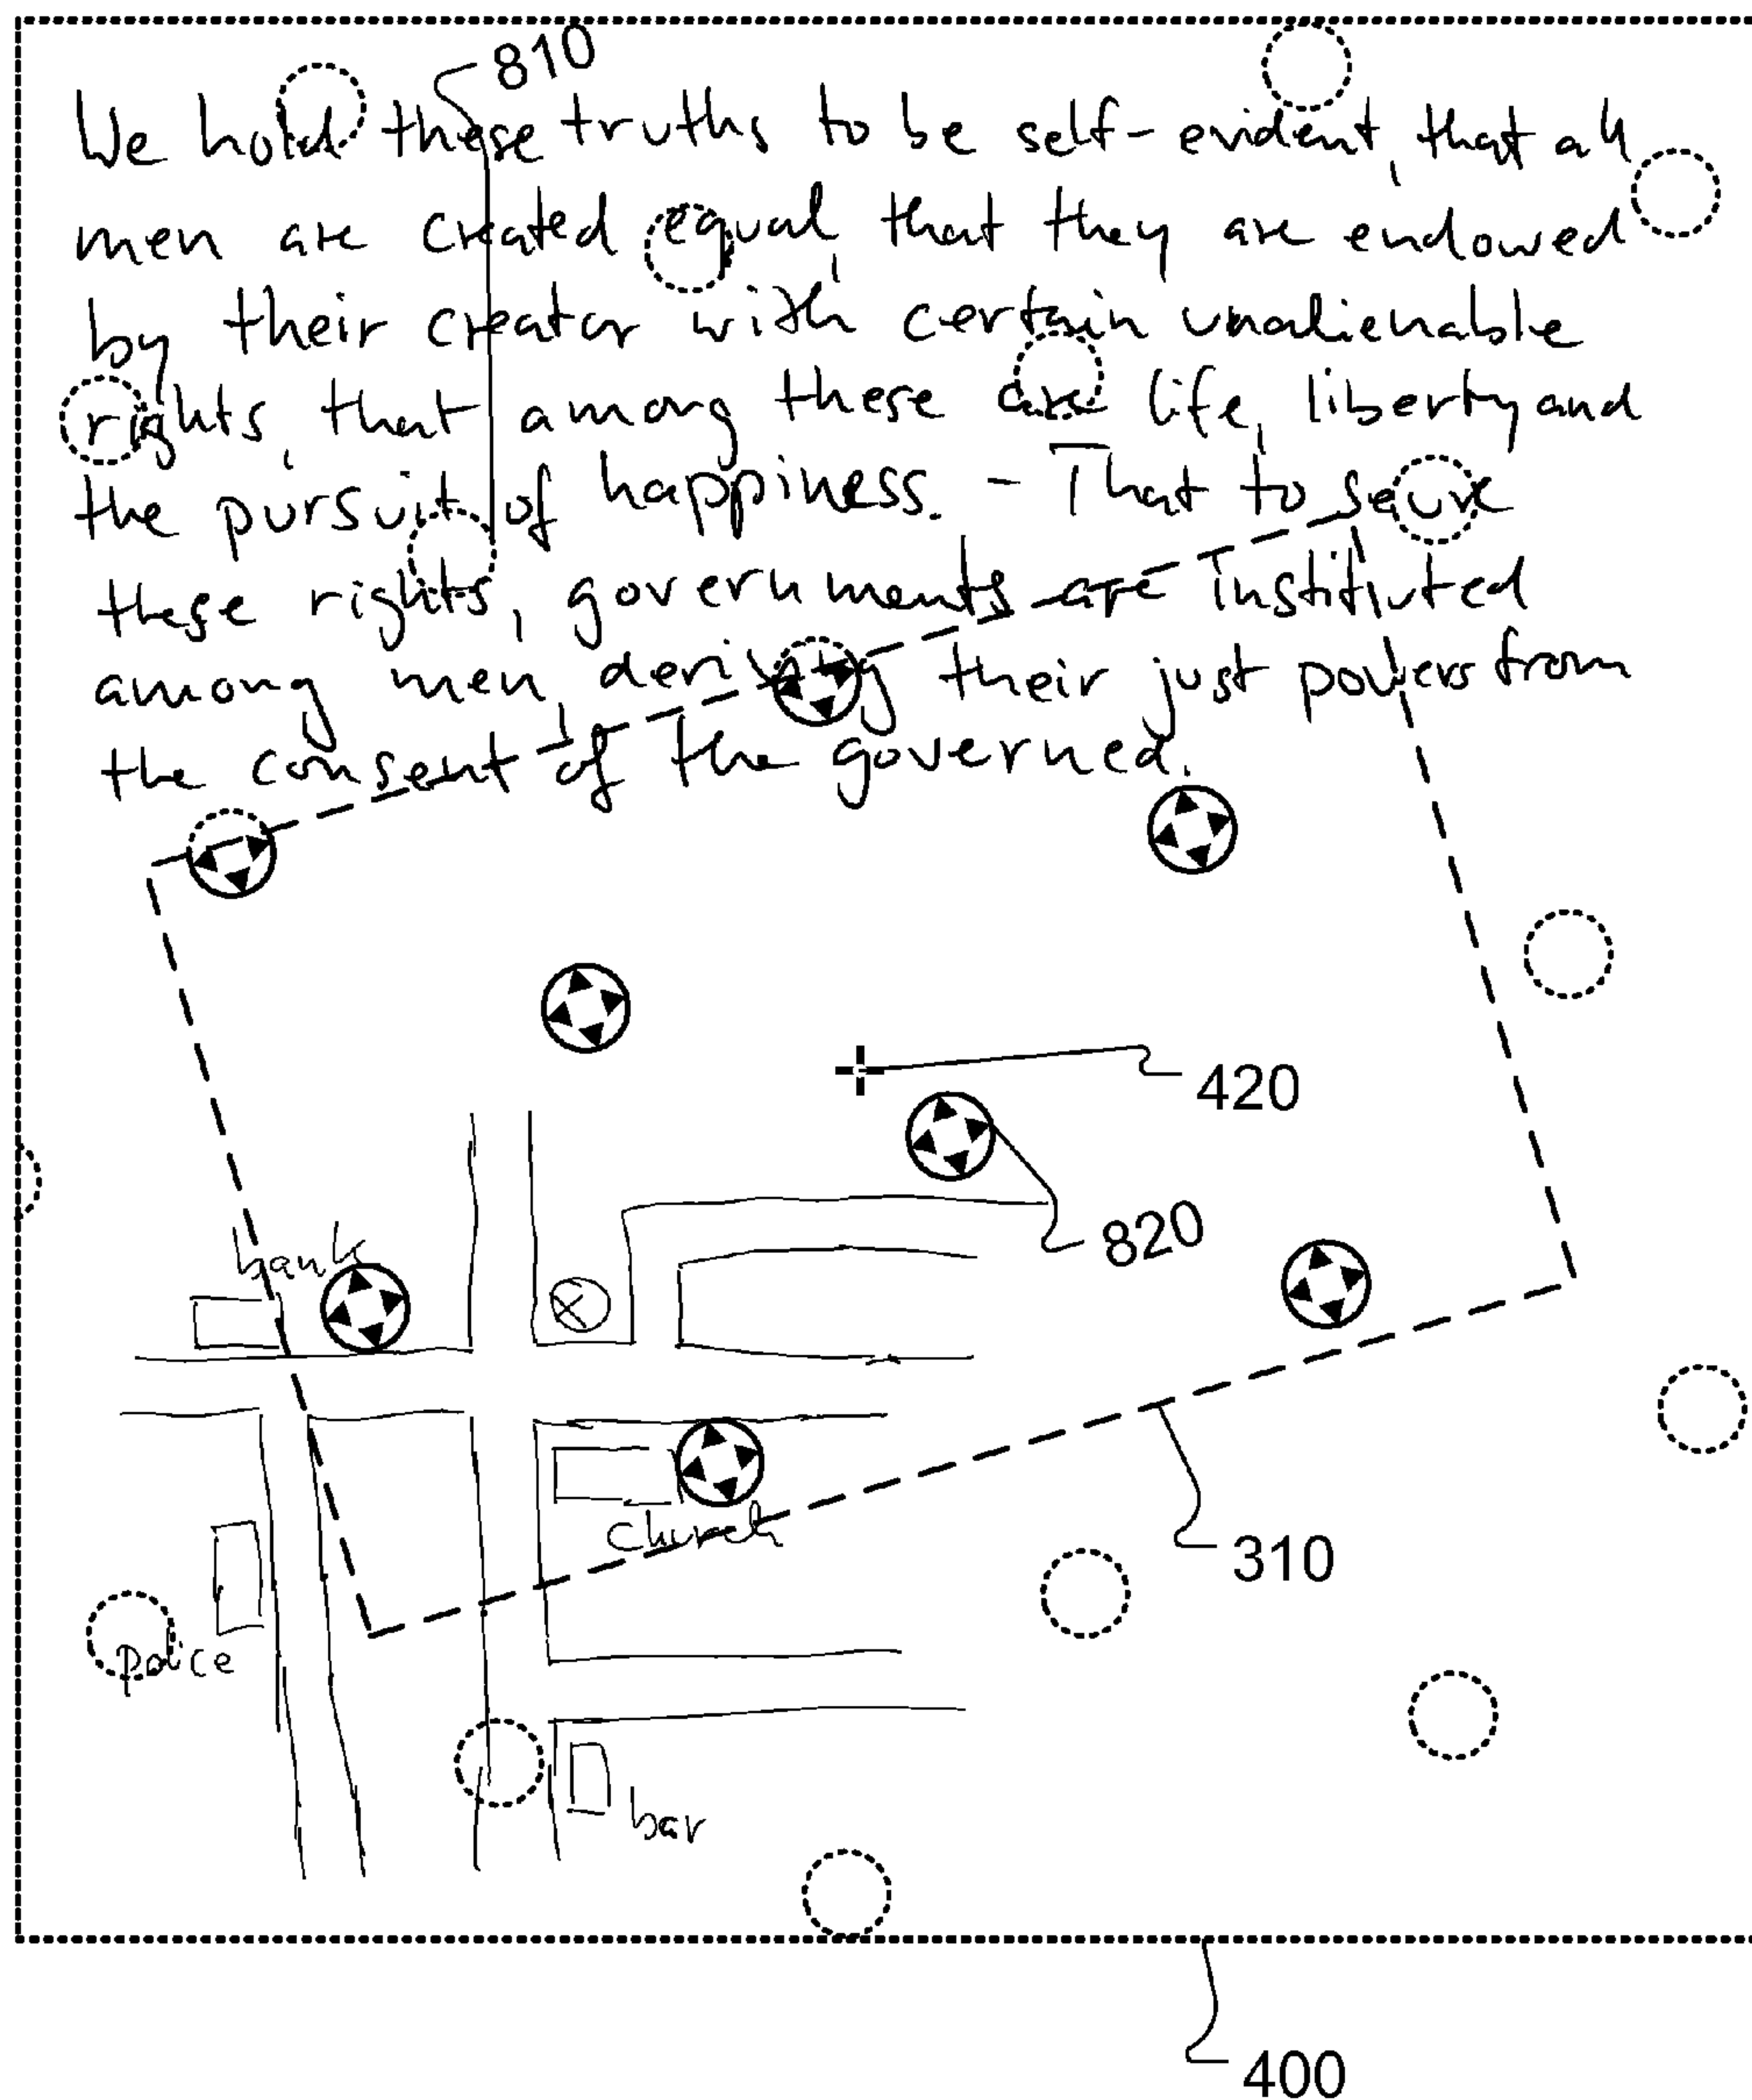 810
We hold these truths to be self-evident, that all
men are created equal, that they are endowed
by their creator with certain unalienable
rights, that among these are life, liberty and
the pursuit of happiness. - That to secure
these rights, governments are instituted
among men, deriving their just powers from
the consent of the governed.
420
820
bank
310
church
police
bar
400